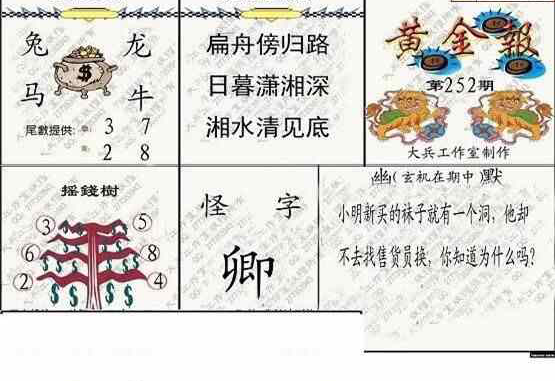 兔 龙
马 牛
尾數提供: 3 7
2 8
扁舟傍归路
日暮潇湘深
湘水清见底
黄金報
第252期
大兵工作室制作
摇錢樹
3 5
6 8
2 4
怪 字
卿
幽(玄机在期中)默
小明新买的袜子就有一个洞，他却
不去找售货员换，你知道为什么吗?